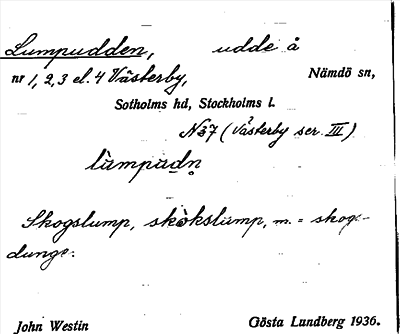 Lumpudden, udde å
nr 1, 2, 3 el. 4 Västerby, Nämdö sn,
Sotholms hd, Stockholms l.
N37 (Västerby ser. III)
lùmpudn̥
Skogslump, skòkslump, m. = skogs-
dunge.
John Westin Gösta Lundberg 1936.